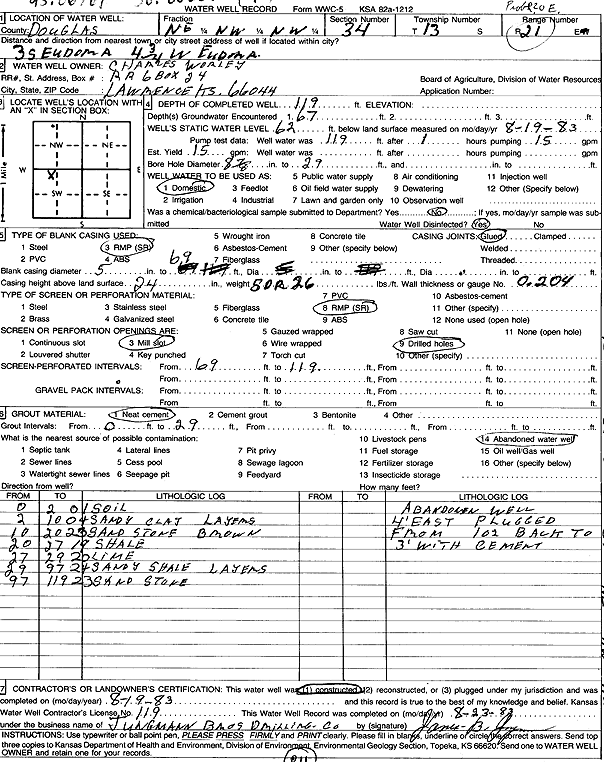 WATER WELL RECORD Form WWC-5 KSA 82a-1212
1 LOCATION OF WATER WELL: Fraction Section Number Township Number Range Number
County: DOUGLAS NE ¼ NW ¼ NW ¼ 34 T 13 S R 21 E
Distance and direction from nearest town or city street address of well if located within city?
3 S EUDORA 4 3/4 W EUDORA.
2 WATER WELL OWNER: CHARLES WORLEY
RR#, St. Address, Box # : RR 6 BOX 24 Board of Agriculture, Division of Water Resources
City, State, ZIP Code : LAWRENCE KS. 66044 Application Number:
3 LOCATE WELL'S LOCATION WITH AN "X" IN SECTION BOX:
N
NW NE
W X E
SW SE
S
1 Mile
4 DEPTH OF COMPLETED WELL 119 ft. ELEVATION:
Depth(s) Groundwater Encountered 1. 67 ft. 2. ft. 3. ft.
WELL'S STATIC WATER LEVEL 62 ft. below land surface measured on mo/day/yr 8-19-83
Pump test data: Well water was 119 ft. after 1 hours pumping 15 gpm
Est. Yield 15 gpm: Well water was ft. after hours pumping gpm
Bore Hole Diameter 8 7/8 in. to 29 ft., and in. to ft.
WELL WATER TO BE USED AS: 5 Public water supply 8 Air conditioning 11 Injection well
1 Domestic 3 Feedlot 6 Oil field water supply 9 Dewatering 12 Other (Specify below)
2 Irrigation 4 Industrial 7 Lawn and garden only 10 Observation well
Was a chemical/bacteriological sample submitted to Department? Yes No ; If yes, mo/day/yr sample was submitted Water Well Disinfected? Yes No
5 TYPE OF BLANK CASING USED: 5 Wrought iron 8 Concrete tile CASING JOINTS: Glued Clamped
1 Steel 3 RMP (SR) 6 Asbestos-Cement 9 Other (specify below) Welded
2 PVC 4 ABS 7 Fiberglass Threaded
Blank casing diameter 5 in. to 69 ft., Dia in. to ft., Dia in. to ft.
Casing height above land surface 24 in., weight SDR 26 lbs./ft. Wall thickness or gauge No. 0.204
TYPE OF SCREEN OR PERFORATION MATERIAL: 7 PVC 10 Asbestos-cement
1 Steel 3 Stainless steel 5 Fiberglass 8 RMP (SR) 11 Other (specify)
2 Brass 4 Galvanized steel 6 Concrete tile 9 ABS 12 None used (open hole)
SCREEN OR PERFORATION OPENINGS ARE: 5 Gauzed wrapped 8 Saw cut 11 None (open hole)
1 Continuous slot 3 Mill slot 6 Wire wrapped 9 Drilled holes
2 Louvered shutter 4 Key punched 7 Torch cut 10 Other (specify)
SCREEN-PERFORATED INTERVALS: From 69 ft. to 119 ft., From ft. to ft.
From ft. to ft., From ft. to ft.
GRAVEL PACK INTERVALS: From ft. to ft., From ft. to ft.
From ft. to ft., From ft. to ft.
6 GROUT MATERIAL: 1 Neat cement 2 Cement grout 3 Bentonite 4 Other
Grout Intervals: From 0 ft. to 29 ft., From ft. to ft., From ft. to ft.
What is the nearest source of possible contamination: 10 Livestock pens 14 Abandoned water well
1 Septic tank 4 Lateral lines 7 Pit privy 11 Fuel storage 15 Oil well/Gas well
2 Sewer lines 5 Cess pool 8 Sewage lagoon 12 Fertilizer storage 16 Other (specify below)
3 Watertight sewer lines 6 Seepage pit 9 Feedyard 13 Insecticide storage
Direction from well? How many feet?
FROM TO LITHOLOGIC LOG FROM TO LITHOLOGIC LOG
0 2 01 SOIL ABANDOWN WELL
2 10 04 SANDY CLAY LAYERS 4' EAST PLUGGED
10 20 23 SAND STONE BROWN FROM 102 BACK TO
20 27 19 SHALE 3' WITH CEMENT
27 29 20 LIME
29 97 24 SANDY SHALE LAYERS
97 119 23 SAND STONE
7 CONTRACTOR'S OR LANDOWNER'S CERTIFICATION: This water well was (1) constructed, (2) reconstructed, or (3) plugged under my jurisdiction and was
completed on (mo/day/year) 8-19-83 and this record is true to the best of my knowledge and belief. Kansas
Water Well Contractor's License No. 119 This Water Well Record was completed on (mo/day/yr) 8-23-83
under the business name of JUNGMANN BROS DRILLING Co by (signature)
INSTRUCTIONS: Use typewriter or ball point pen, PLEASE PRESS FIRMLY and PRINT clearly. Please fill in blanks, underline or circle the correct answers. Send top
three copies to Kansas Department of Health and Environment, Division of Environment, Environmental Geology Section, Topeka, KS 66620. Send one to WATER WELL
OWNER and retain one for your records.